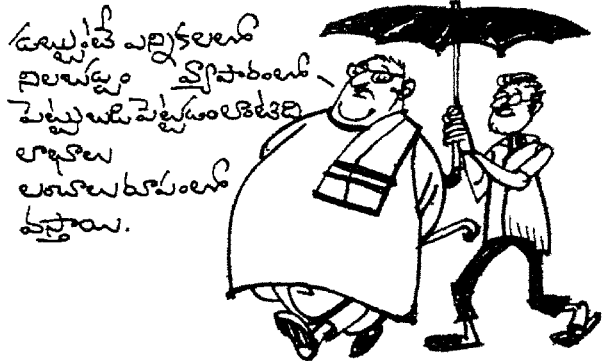 డబ్బుంటే ఎన్నికలలో
నిలబడ్డం వ్యాపారంలో
పెట్టుబడి పెట్టడంలాంటిది
లాభాలు
లంచాలు రూపంలో
వస్తాయి.